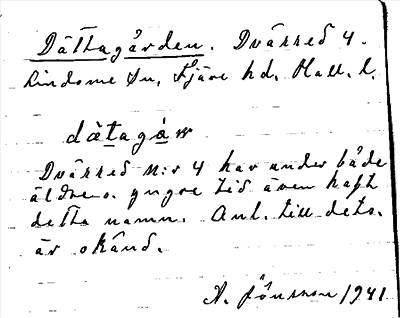 Dättagården. Dvärred 4.
Lindome sn, Fjäre hd, Hall. l.
dätagáɳ
Dvärred N:r 4 har under både
äldre o. yngre tid även haft
detta namn. Anl. till dets.
är okänd.
A. Jönsson 1941